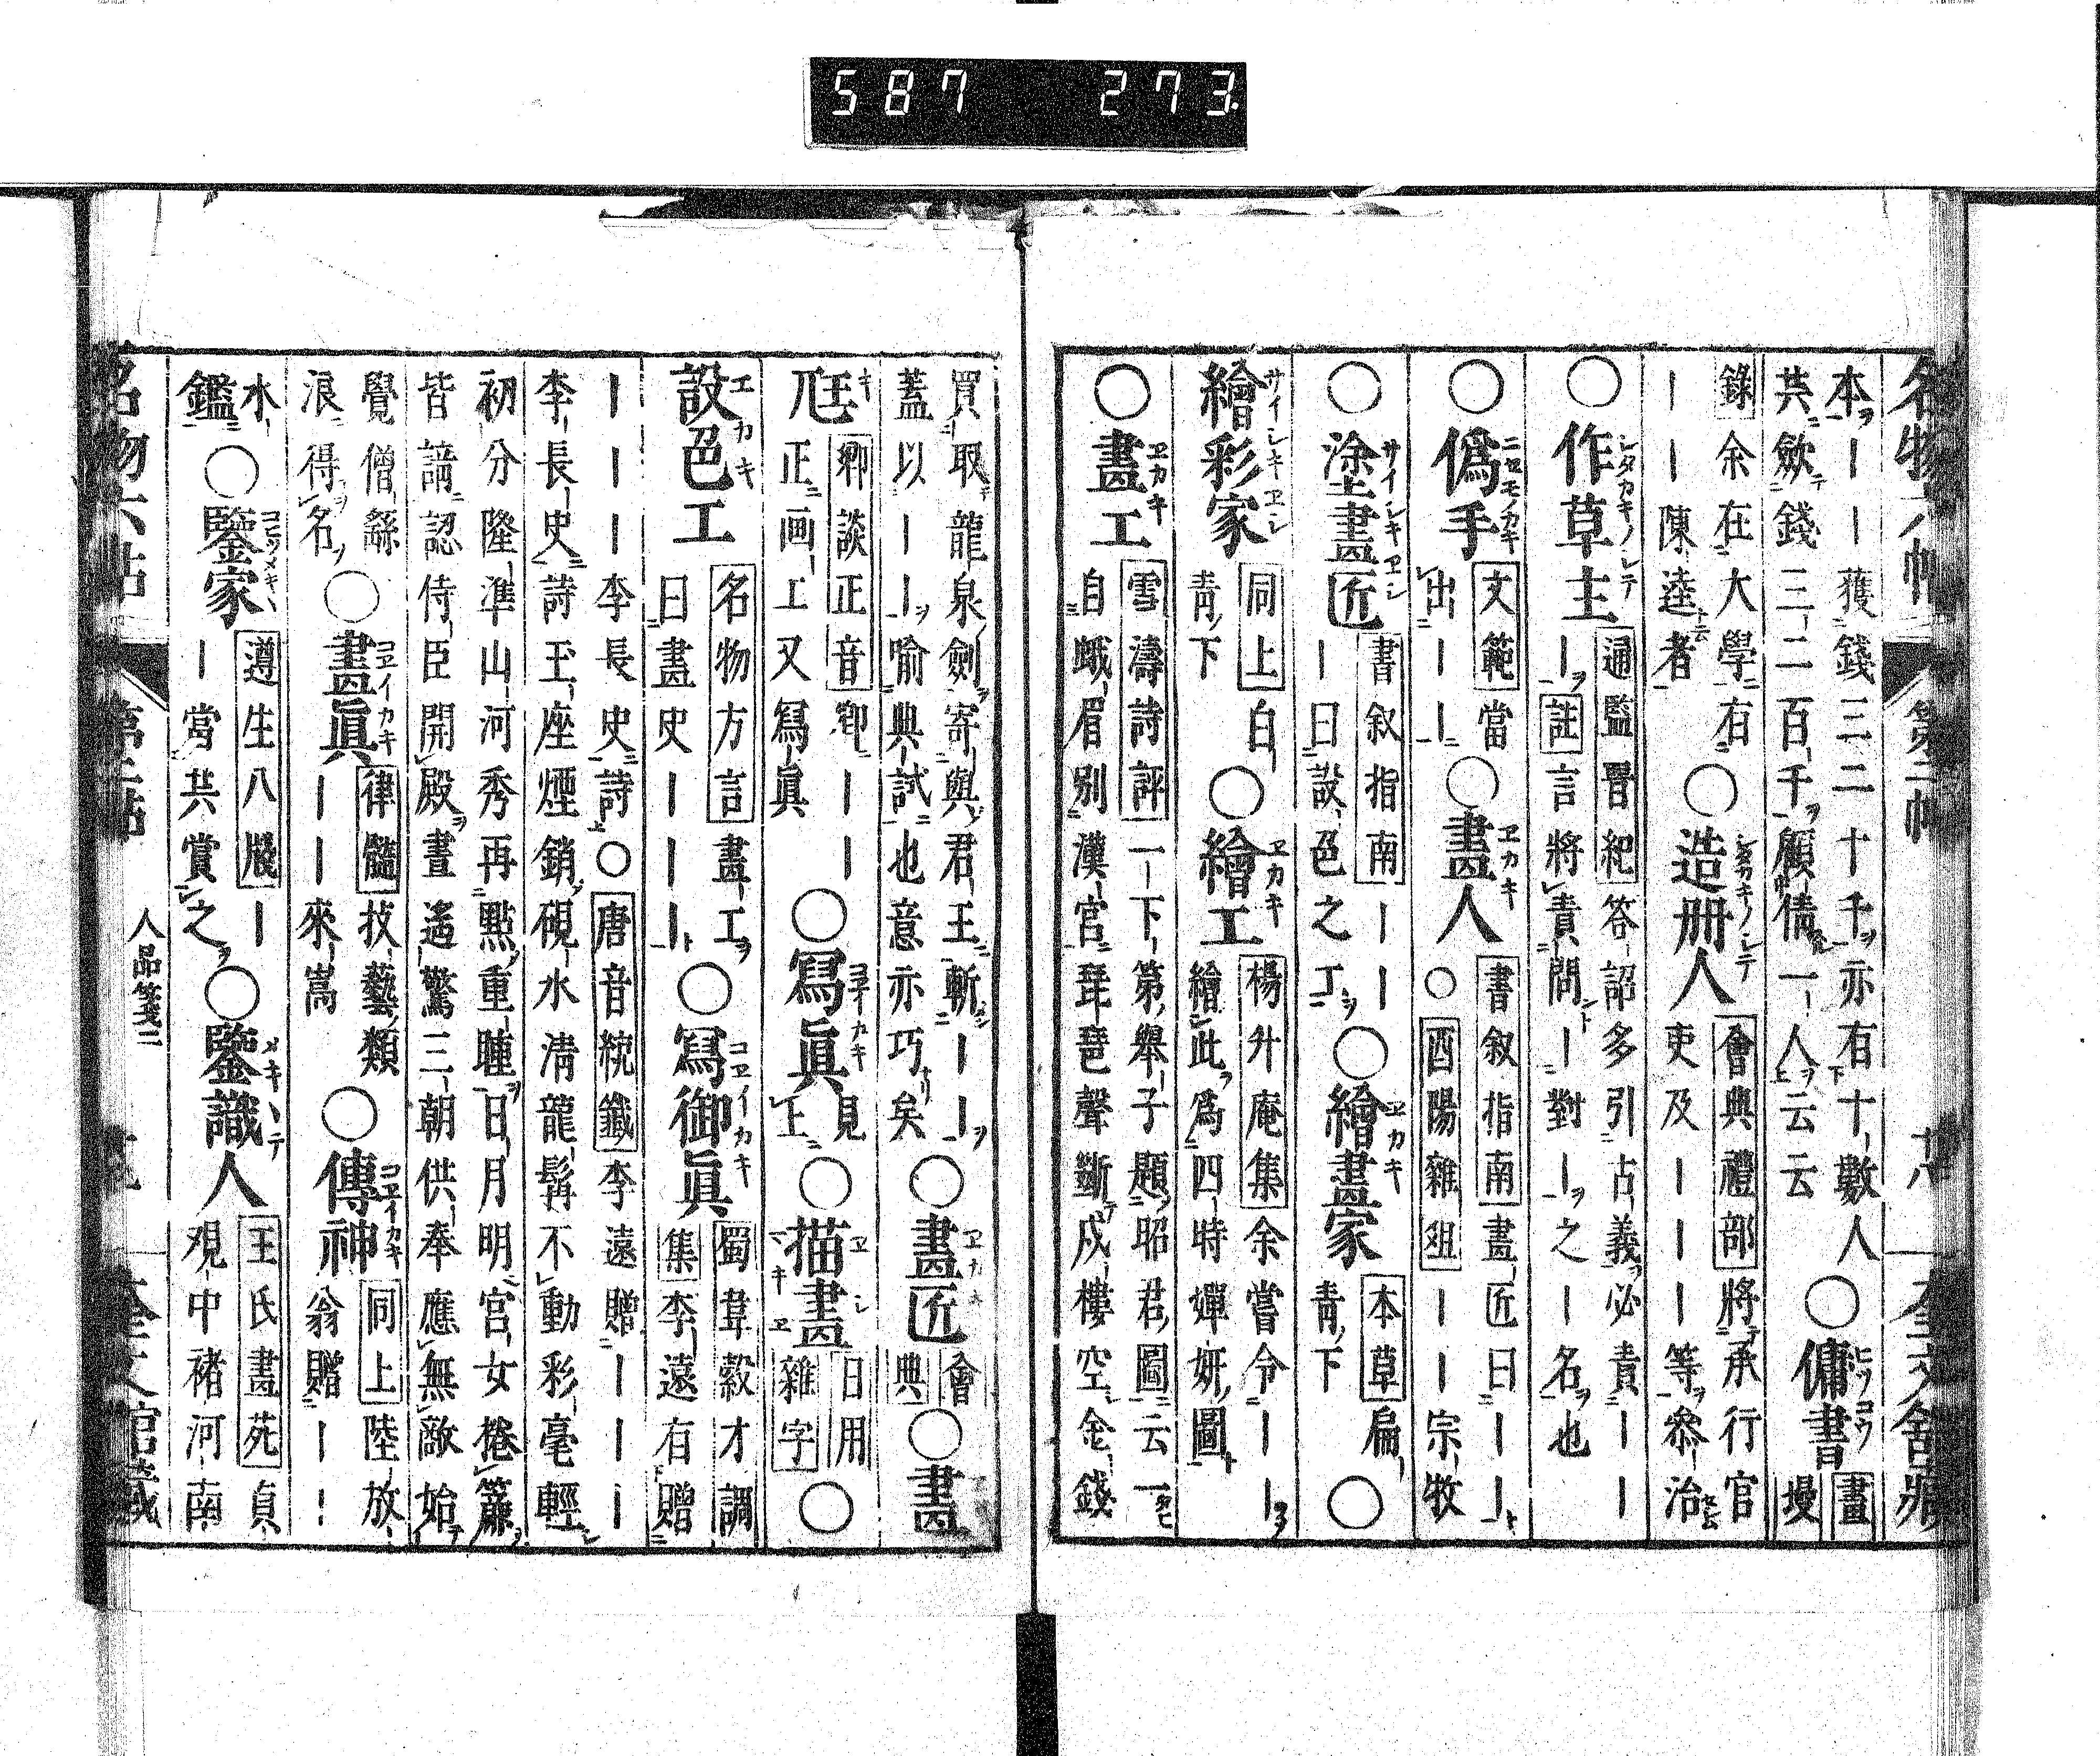 587 273
名物六帖 第二帖 廿八 奎文舘藏
本ーー獲錢三二十千亦有十數人
共歛錢三二百千顧倩一人云云
○傭書 畫墁
錄余在大學有
ーー陳逵者
○造册人 會典禮部將承行官
吏及ーーー等叅治
○作草主 通監晋紀答詔多引古義必責ーー
ー註言將責問ー對ー之ー名也
○僞手 文範當
出ーー
○畫人 書叙指南畫匠曰ーー
○酉陽雜俎ーー宗牧
○塗畫匠 書叙指南ーー
ー曰設色之工
○繪畫家 本草扁
青下
○繪彩家 同上白
青下
○繪工 楊升庵集余嘗令ーー
繪此爲四時嬋妍圖
○畫工 雪濤詩評一下第舉子題昭君圖云一
自蛾眉别漢宫琵琶聲斷戍樓空金錢
買取龍泉劍寄與君王斬ーー
蓋以ーー喻典試也意亦巧矣
○畫匠 會典
○畫尫 卿談正音卿ーー
正画工又寫眞
○寫眞 見上
○描畫 日用雜字
○設色工 名物方言畫工
曰畫史ーーー
○寫御眞 蜀韋縠才調
集李遠有贈
ーーー李長史詩○唐音統籤李遠贈ーーー
李長史詩玉座煙銷硯水清龍髯不動彩毫輕
初分隆準山河秀再點重瞳日月明宫女捲簾
皆謂認侍臣開殿晝遙驚三朝供奉應無敵始
覺僧繇
浪得名
○畫眞 律髓技藝類
ーー來嵩
○傳神 同上陸放
翁贈ーー
水鑑
○鑒家 遵生八牋ー
ー當共賞之
○鑒識人 王氏畫苑貞
觀中褚河南
名物六帖 第二帖 人品箋三 奎文舘藏